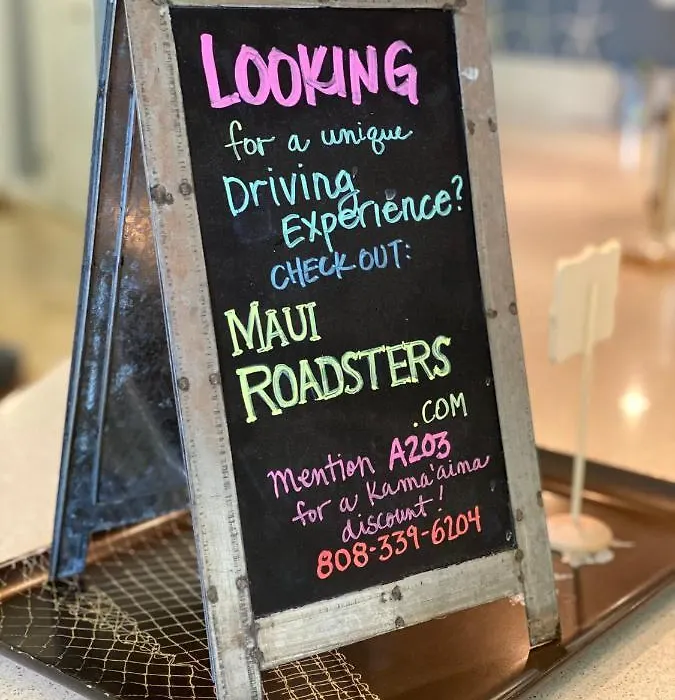 LOOKING
for a unique
Driving
Experience?
CHECK OUT:
MAUI
ROADSTERS
.COM
Mention A203
for a Kama'aina
discount!
808-339-6204